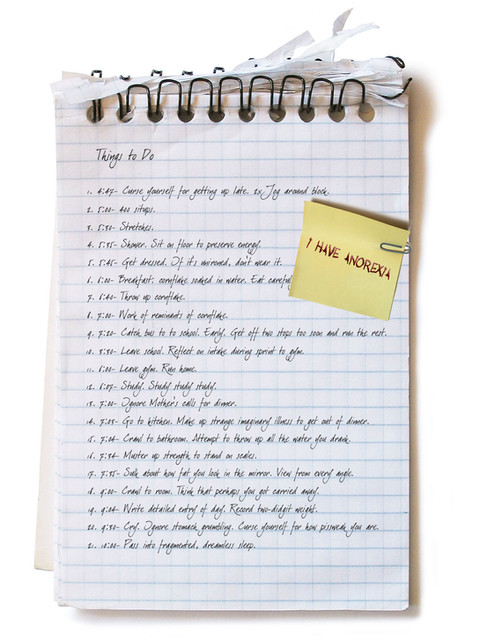 Things to Do
1. 4:47- Curse yourself for getting up late. 2x Jog around block.
2. 5:00- 400 situps.
3. 5:30- Stretches.
4. 5:35- Shower. Sit on floor to preserve energy.
5. 5:45- Get dressed. If it's unironed, don't wear it.
I HAVE ANOREXIA
6. 6:00- Breakfast: cornflake soaked in water. Eat
7. 6:40- Throw up cornflake.
8. 7:00- Work of reminants of cornflake.
9. 7:20- Catch bus to to school. Early. Get off two stops too soon and run the rest.
10. 3:30- Leave school. Reflect on intake during sprint to gym.
11. 6:00- Leave gym. Run home.
12. 6:07- Study. Study study study.
13. 7:00- Ignore Mother's calls for dinner.
14. 7:03- Go to kitchen. Make up strange imaginary illness to get out of dinner.
15. 7:04- Crawl to bathroom. Attempt to throw up all the water you drank.
16. 7:34- Muster up strength to stand on scales.
17. 7:35- Sulk about how fat you look in the mirror. View from every angle.
18. 9:00- Crawl to room. Think that perhaps you got carried away.
19. 9:04- Write detailed entry of day. Record two-digit weight.
20. 9:30- Cry. Ignore stomach grumbling. Curse yourself for how pissweak you are.
21. 10:00- Pass into fragmented, dreamless sleep.